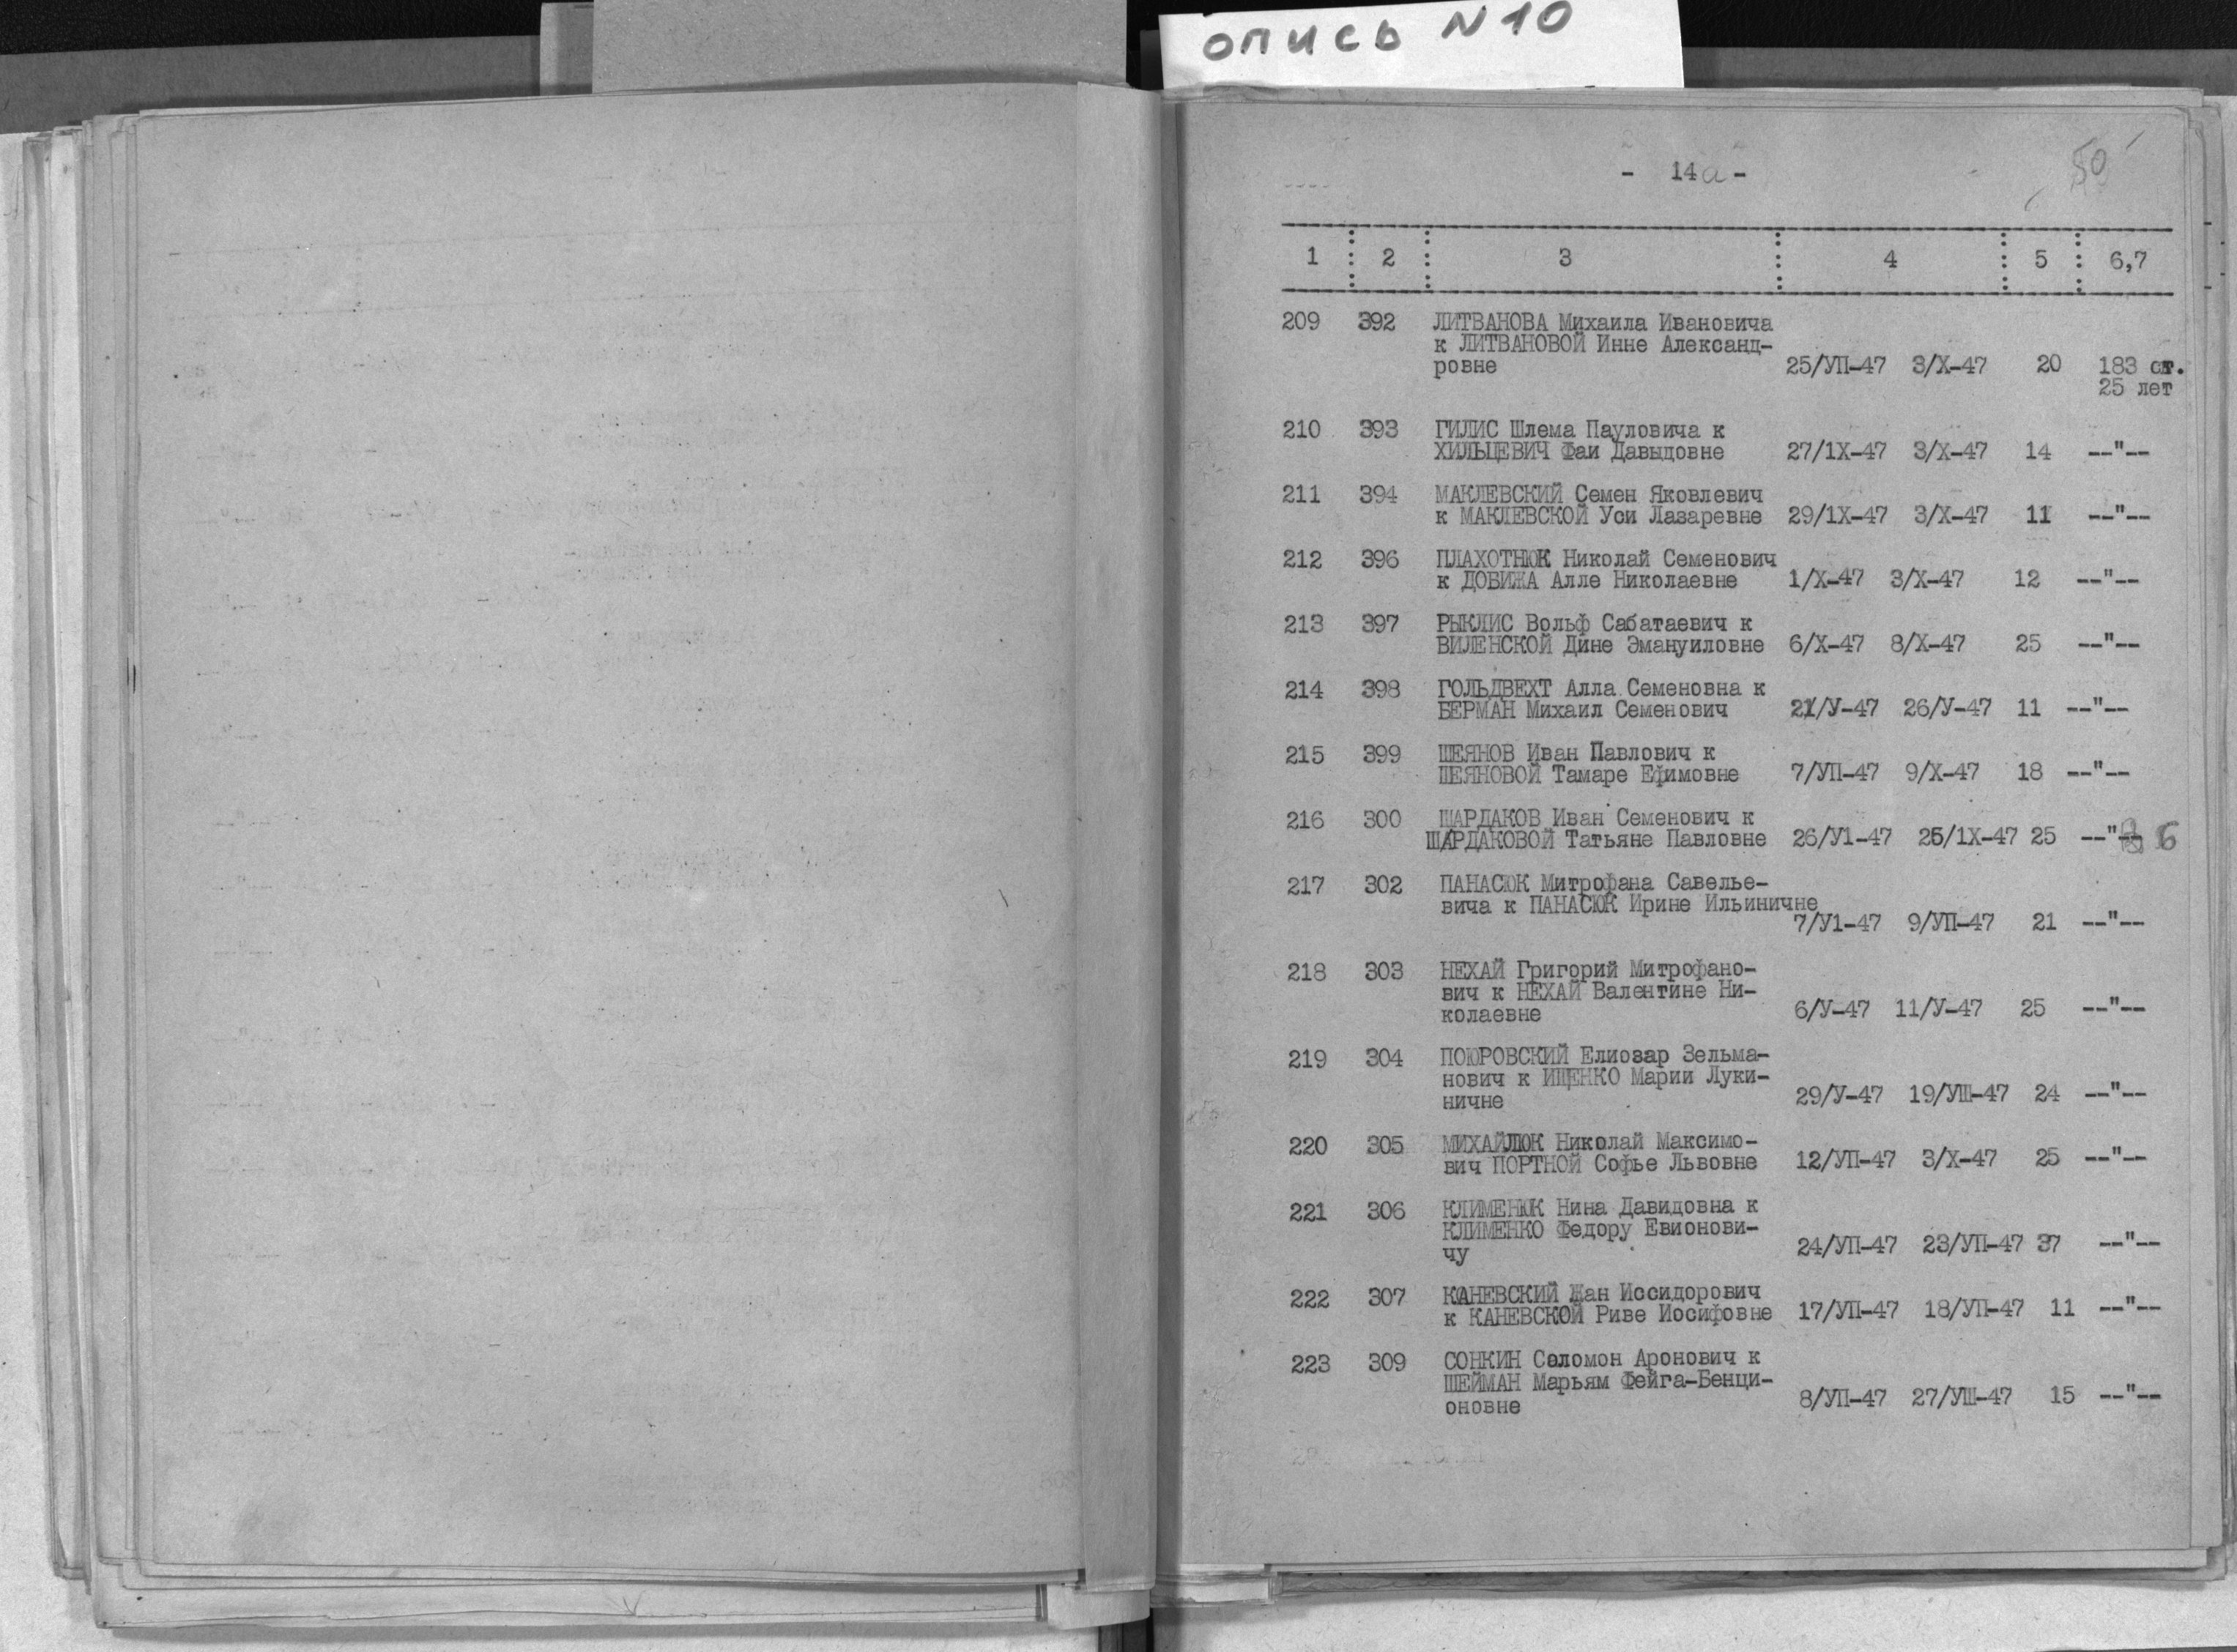 опись N 10
- 14а -
50
1 : 2 : 3 : 4 : 5 : 6,7
209 392 ЛИТВАНОВА Михаила Ивановича
к ЛИТВАНОВОЙ Инне Александ-
ровне 25/УП-47 3/Х-47 20 183 ст.
25 лет
210 393 ГИЛИС Шлема Пауловича к
ХИЛЬЦЕВИЧ Фаи Давыдовне 27/1Х-47 3/Х-47 14 --"--
211 394 МАКЛЕВСКИЙ Семен Яковлевич
к МАКЛЕВСКОЙ Уси Лазаревне 29/1Х-47 3/Х-47 11 --"--
212 396 ПЛАХОТНЮК Николай Семенович
к ДОБИЖА Алле Николаевне 1/Х-47 3/Х-47 12 --"--
213 397 РЫКЛИС Вольф Сабатаевич к
ВИЛЕНСКОЙ Дине Эмануиловне 6/Х-47 8/Х-47 25 --"--
214 398 ГОЛЬДВЕХТ Алла Семеновна к
БЕРМАН Михаил Семенович 21/У-47 26/У-47 11 --"--
215 399 ШЕЯНОВ Иван Павлович к
ШЕЯНОВОЙ Тамаре Ефимовне 7/УП-47 9/Х-47 18 --"--
216 300 ШАРДАКОВ Иван Семенович к
ШАРДАКОВОЙ Татьяне Павловне 26/У1-47 25/1Х-47 25 --"-- б
217 302 ПАНАСЮК Митрофана Савелье-
вича к ПАНАСЮК Ирине Ильиничне
7/У1-47 9/УП-47 21 --"--
218 303 НЕХАЙ Григорий Митрофано-
вич к НЕХАЙ Валентине Ни-
колаевне 6/У-47 11/У-47 25 --"--
219 304 ПОЮРОВСКИЙ Елиозар Зельма-
нович к ИЩЕНКО Марии Луки-
ничне 29/У-47 19/УШ-47 24 --"--
220 305 МИХАЙЛЮК Николай Максимо-
вич ПОРТНОЙ Софье Львовне 12/УП-47 3/Х-47 25 --"--
221 306 КЛИМЕНЮК Нина Давидовна к
КЛИМЕНКО Федору Евионови-
чу 24/УП-47 23/УП-47 37 --"--
222 307 КАНЕВСКИЙ Жан Иссидорович
к КАНЕВСКОЙ Риве Иосифовне 17/УП-47 18/УП-47 11 --"--
223 309 СОНКИН Соломон Аронович к
ШЕЙМАН Марьям Фейга-Бенци-
оновне 8/УП-47 27/УШ-47 15 --"--